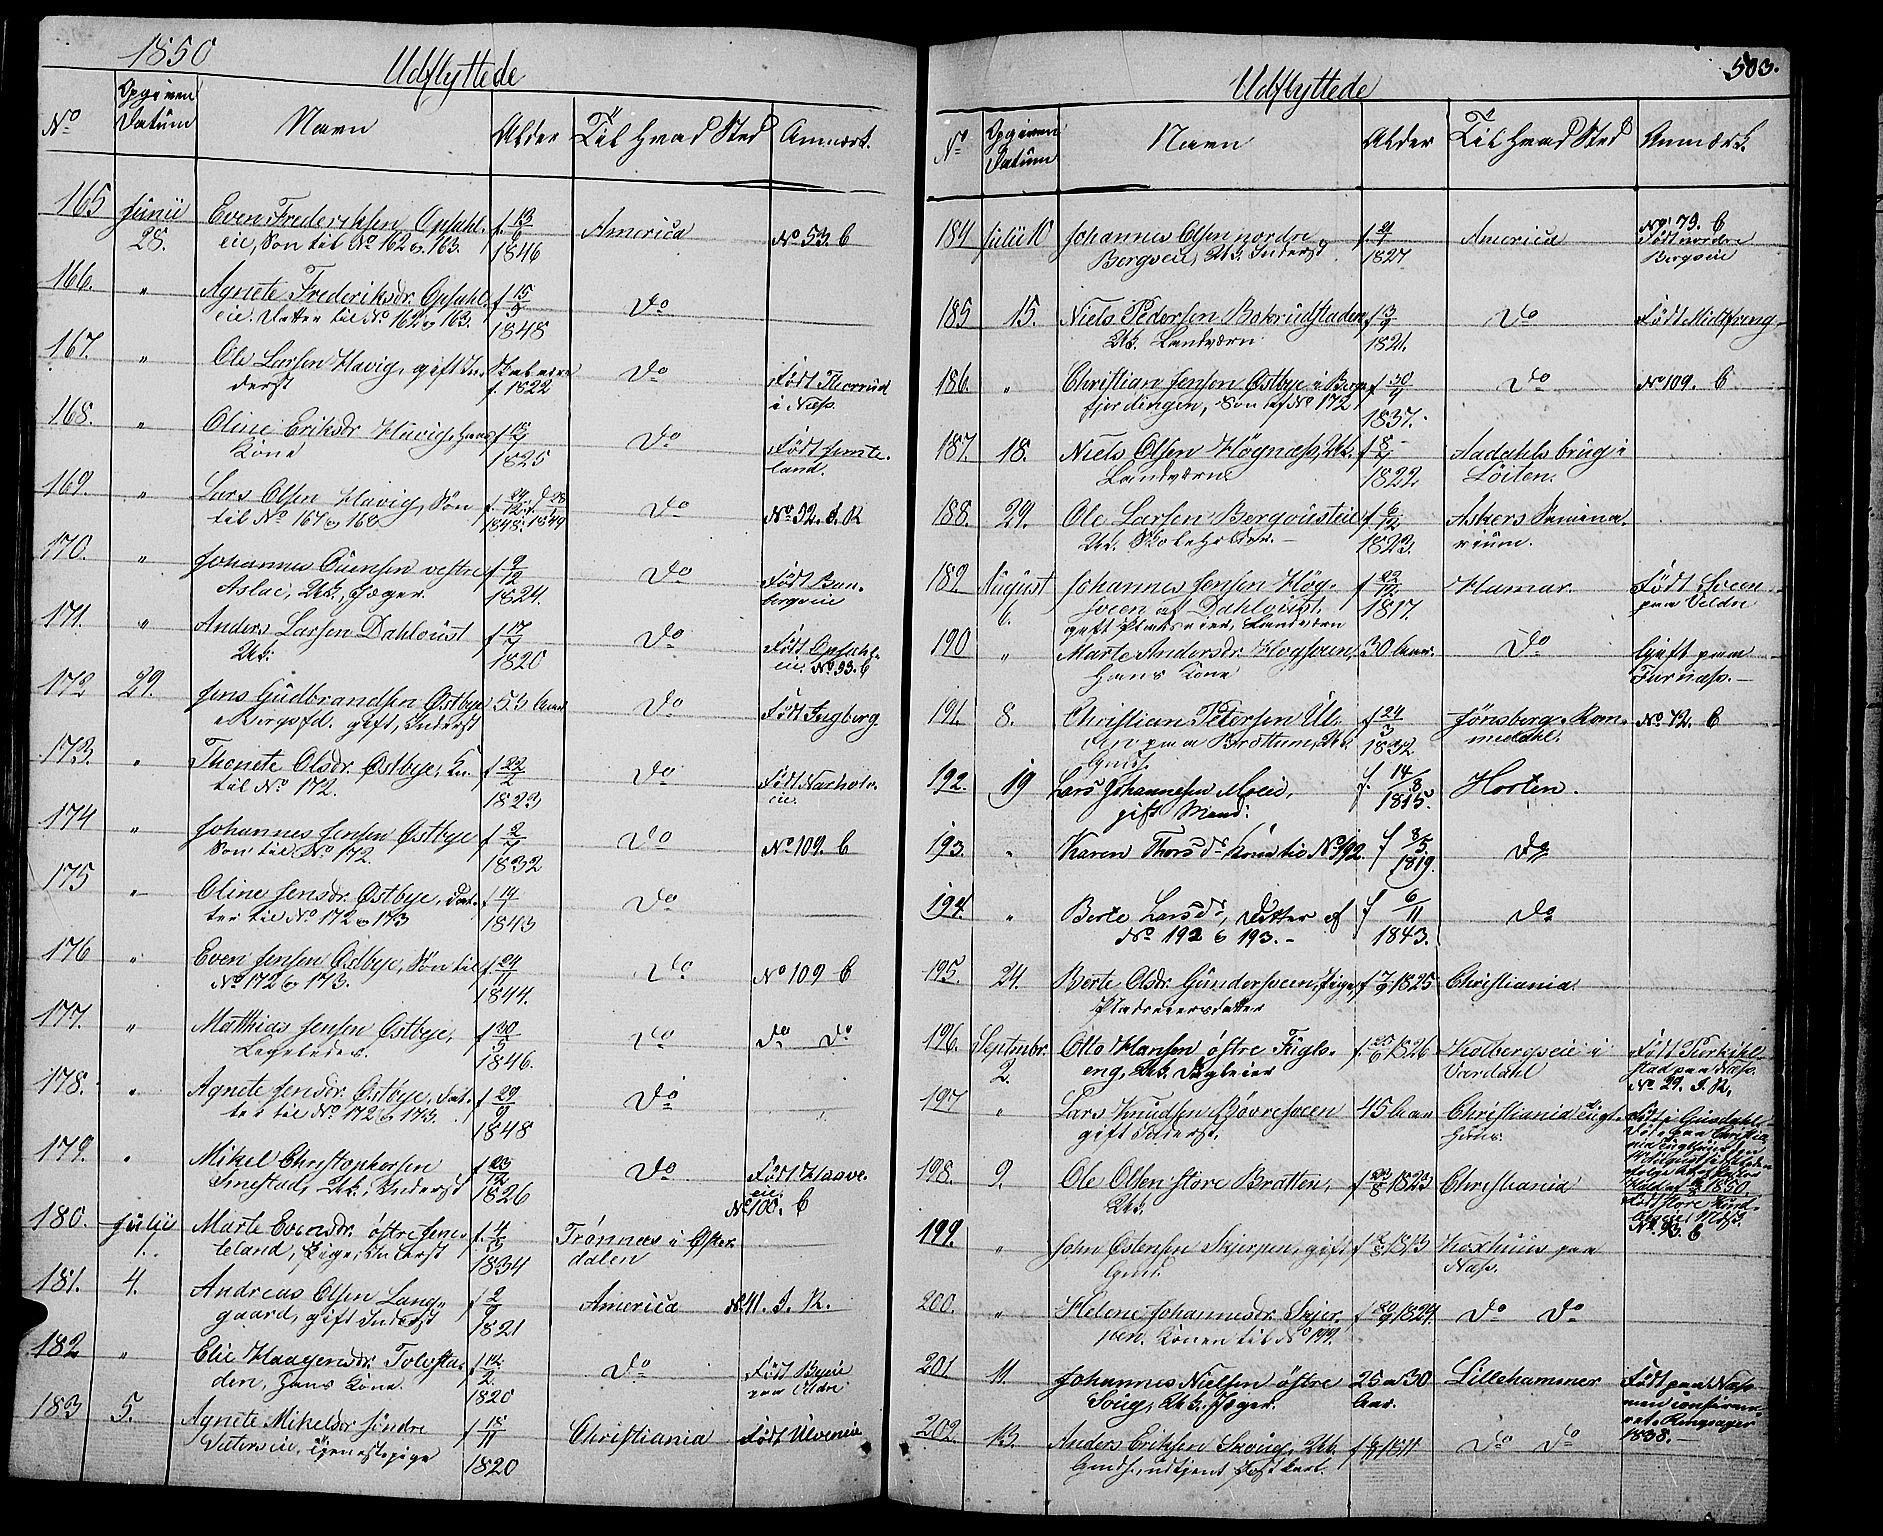 1850
Udflyttede
No
Opgiven
Datum
Navn
Alder
Til hvad Sted
Anmærk.
165
Junii
28.
Even Frederiksen Opsahl-
eie, Søn til No 162 og 163.
f. 13/6
1846
America
No 53. b
166.
"
Agnete Frederiksdr. Opsahl-
eie. Datter til No 162 og 163.
f 15/3
1848
Do
167.
"
Ole Larsen Havig, gift In-
derst
f. 1822
Do
Født Thorrud
i Næss.
168.
"
Oline Eriksdr Havig, hans
Kone
1825
Do
Født Jemte-
land.
169.
"
Lars Olsen Havig, Søn
til No 167 og 168
1848. 1849
Do
No 52. J. R
170.
"
Johannes Evensen vestre
Aslac, Uk., Jæger.
f 9/12
1824.
Do
Født Ban-
bergseie
171.
"
Anders Larsen Dahlqvist
Uk:
f 17/7
1820
Do
Født Opsahl-
eie. No 53. b
172
29.
Jens Gudbrandsen Østbye
i Bergsfd. gift, Inderst
53 Aar
Do
Født Ingberg.
173.
"
Thonete Olsdr. Østbye, Kn.
til No 172.
f 22/2
1823
Do
174
"
Johannes Jensen Østbye
Søn til No 172.
f 2/7
1832
Do
No 109. b
175
"
Oline Jensdr. Østbye, Dat-
ter til No 172 og 173
f 14/1
1843
Do
176
"
Even Jensen Østbye, Søn til
No 172 og 173.
f. 24/1
1844.
Do
No 109 b
177.
"
Matthias Jensen Østbye,
Ligeledes.
f 30/3
1846.
Do
Do Do
178.
"
Agnete Jensdr. Østbye, Dat-
ter til No 172 og 173.
f 29/9
1848
Do
179.
"
Mikel Christophersen
Imestad, Uk., Inderst
f 23/12
1826
Do
Født Haave-
eie.
No 100. b
180.
Julii
1.
Marte Evensdr. østre Jem-
teland, Pige, Inderst
f. 4/3
1834
Trønnæs i Øster-
dalen
181.
4.
Andreas Olsen Lang-
gaard, gift Inderst
f 2/9
1821
America
No 11. J. R.
182
"
Elie Haagensdr. Tolvsta-
den, hans Kone.
f 12/2.
1820
Do
Født Byeie
paa Veldre
183
5.
Agnete Mikelsdr søndre
Sæterseie, Tjenestepige
f 18/11
1820
Christiania
Født Ulveneie
503.
Udflyttede
No
Opgiven
Datum
Navn
Alder
Til hvad Sted
Anmærk.
184
Julii 10
Johannes Olsen nordre
Bergseie, Uk. Inderst.
1827
America
No 79. b
Født nordre
Bergseie
185
15.
Niels Pedersen Bakrudstaden
Uk. Landværn
f 3/9
1821.
Do
186.
"
Christian Jensen Østbye i Bergs-
fjerdingen, Søn af No 172
1837.
Do
No 109. b
187.
18.
Niels Olsen Høgnæss, Uk.
Landværn
1822.
Aadahlsbrug i
Løiten.
188.
29.
Ole Larsen Bergqvisteie
Uk. Skoleholder.
f 6/12
1823.
Askers Semina-
rium.
189
August
6.
Johannes Jensen Høg-
sveen af Dahlqvist,
gift Pladseier, Landværn
f 22/12
1817.
Hamar.
Født Sveen
paa Veldre
190
"
Marte Andersdr. Høgsveen,
hans Kone
30 Aar.
Do
Gift paa
Furnæss.
191.
8.
Christian Petersen Ul-
paa Brøttum, Uk.
Gmd.
f 24/3
1832.
Jønsberg Rom-
medahl.
No 42. b
192.
19
Lars Johannesen Moeie,
gift Mand.
f. 14/8
1815.
Horten.
193.
"
Karen Thorsdr. Kone til No 192.
f 8/5
1819.
Do
194.
"
Berte Larsdr., Datter af
No 192 & 193.
f 6/11
1843.
Do
195.
24.
Berte Olsdr. Gundersveen, Pige,
Pladseiersdatter
f 7/9 1825
Christiania
196.
Septembr.
2.
Otto Hansen østre Fugls-
eng, Uk. Dagleier
1826
Kolbergseie i
Værdahl
Født Torkihl-
stad paa Næss.
No 29. J. R.
197
"
Lars Knudsen Skovresveen
gift Inderst.
45 Aar
Christiania
Født i Gusdahl
198.
9.
Ole Olsen store Bratten,
Uk.
1823
Christiania
No 93. b
199.
"
John Østensen Skjerpen, gift
Gmd.
1813
Koxhuus paa
Næss.
200.
"
Helene Johannesdr. Skjer-
pen. Konen til No 199.
1824.
Do Do
201.
11.
Johannes Nielsen østre
Soug, Uk. Jæger.
25 a 30
Aar.
Lillehammer
Født paa Næss
men confirme-
ret i Ringsager
1838.
202.
13.
Anders Eriksen Skoug, Uk.
Gmds., udtjent
1811
Do Do